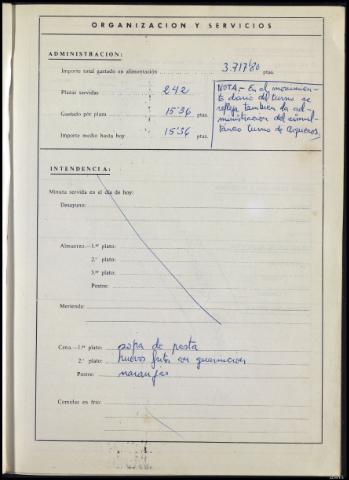 ORGANIZACION Y SERVICIOS
ADMINISTRACION:
Importe total gastado en alimentación 3.717'80 ptas.
Plazas servidas 242
Gastado por plaza 15'36 ptas.
Importe medio hasta hoy 15'36 ptas.
NOTA.- En el movimien-
to diario del turno se
refleja también la ad-
ministracion del simul-
taneo turno de
INTENDENCIA:
Minuta servida en el día de hoy:
Desayuno:
Almuerzo.—1.er plato:
2.º plato:
3.er plato:
Postre:
Merienda:
Cena.—1.er plato: sopa de pasta
2.º plato: huevos fritos con guarnicion
Postre: naranjas
Comidas en frío: